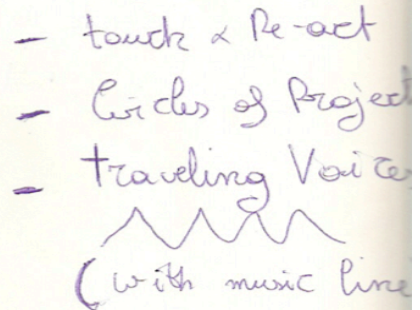 - touch & Re-act
- Circles of Project
- traveling Voice
(with music line